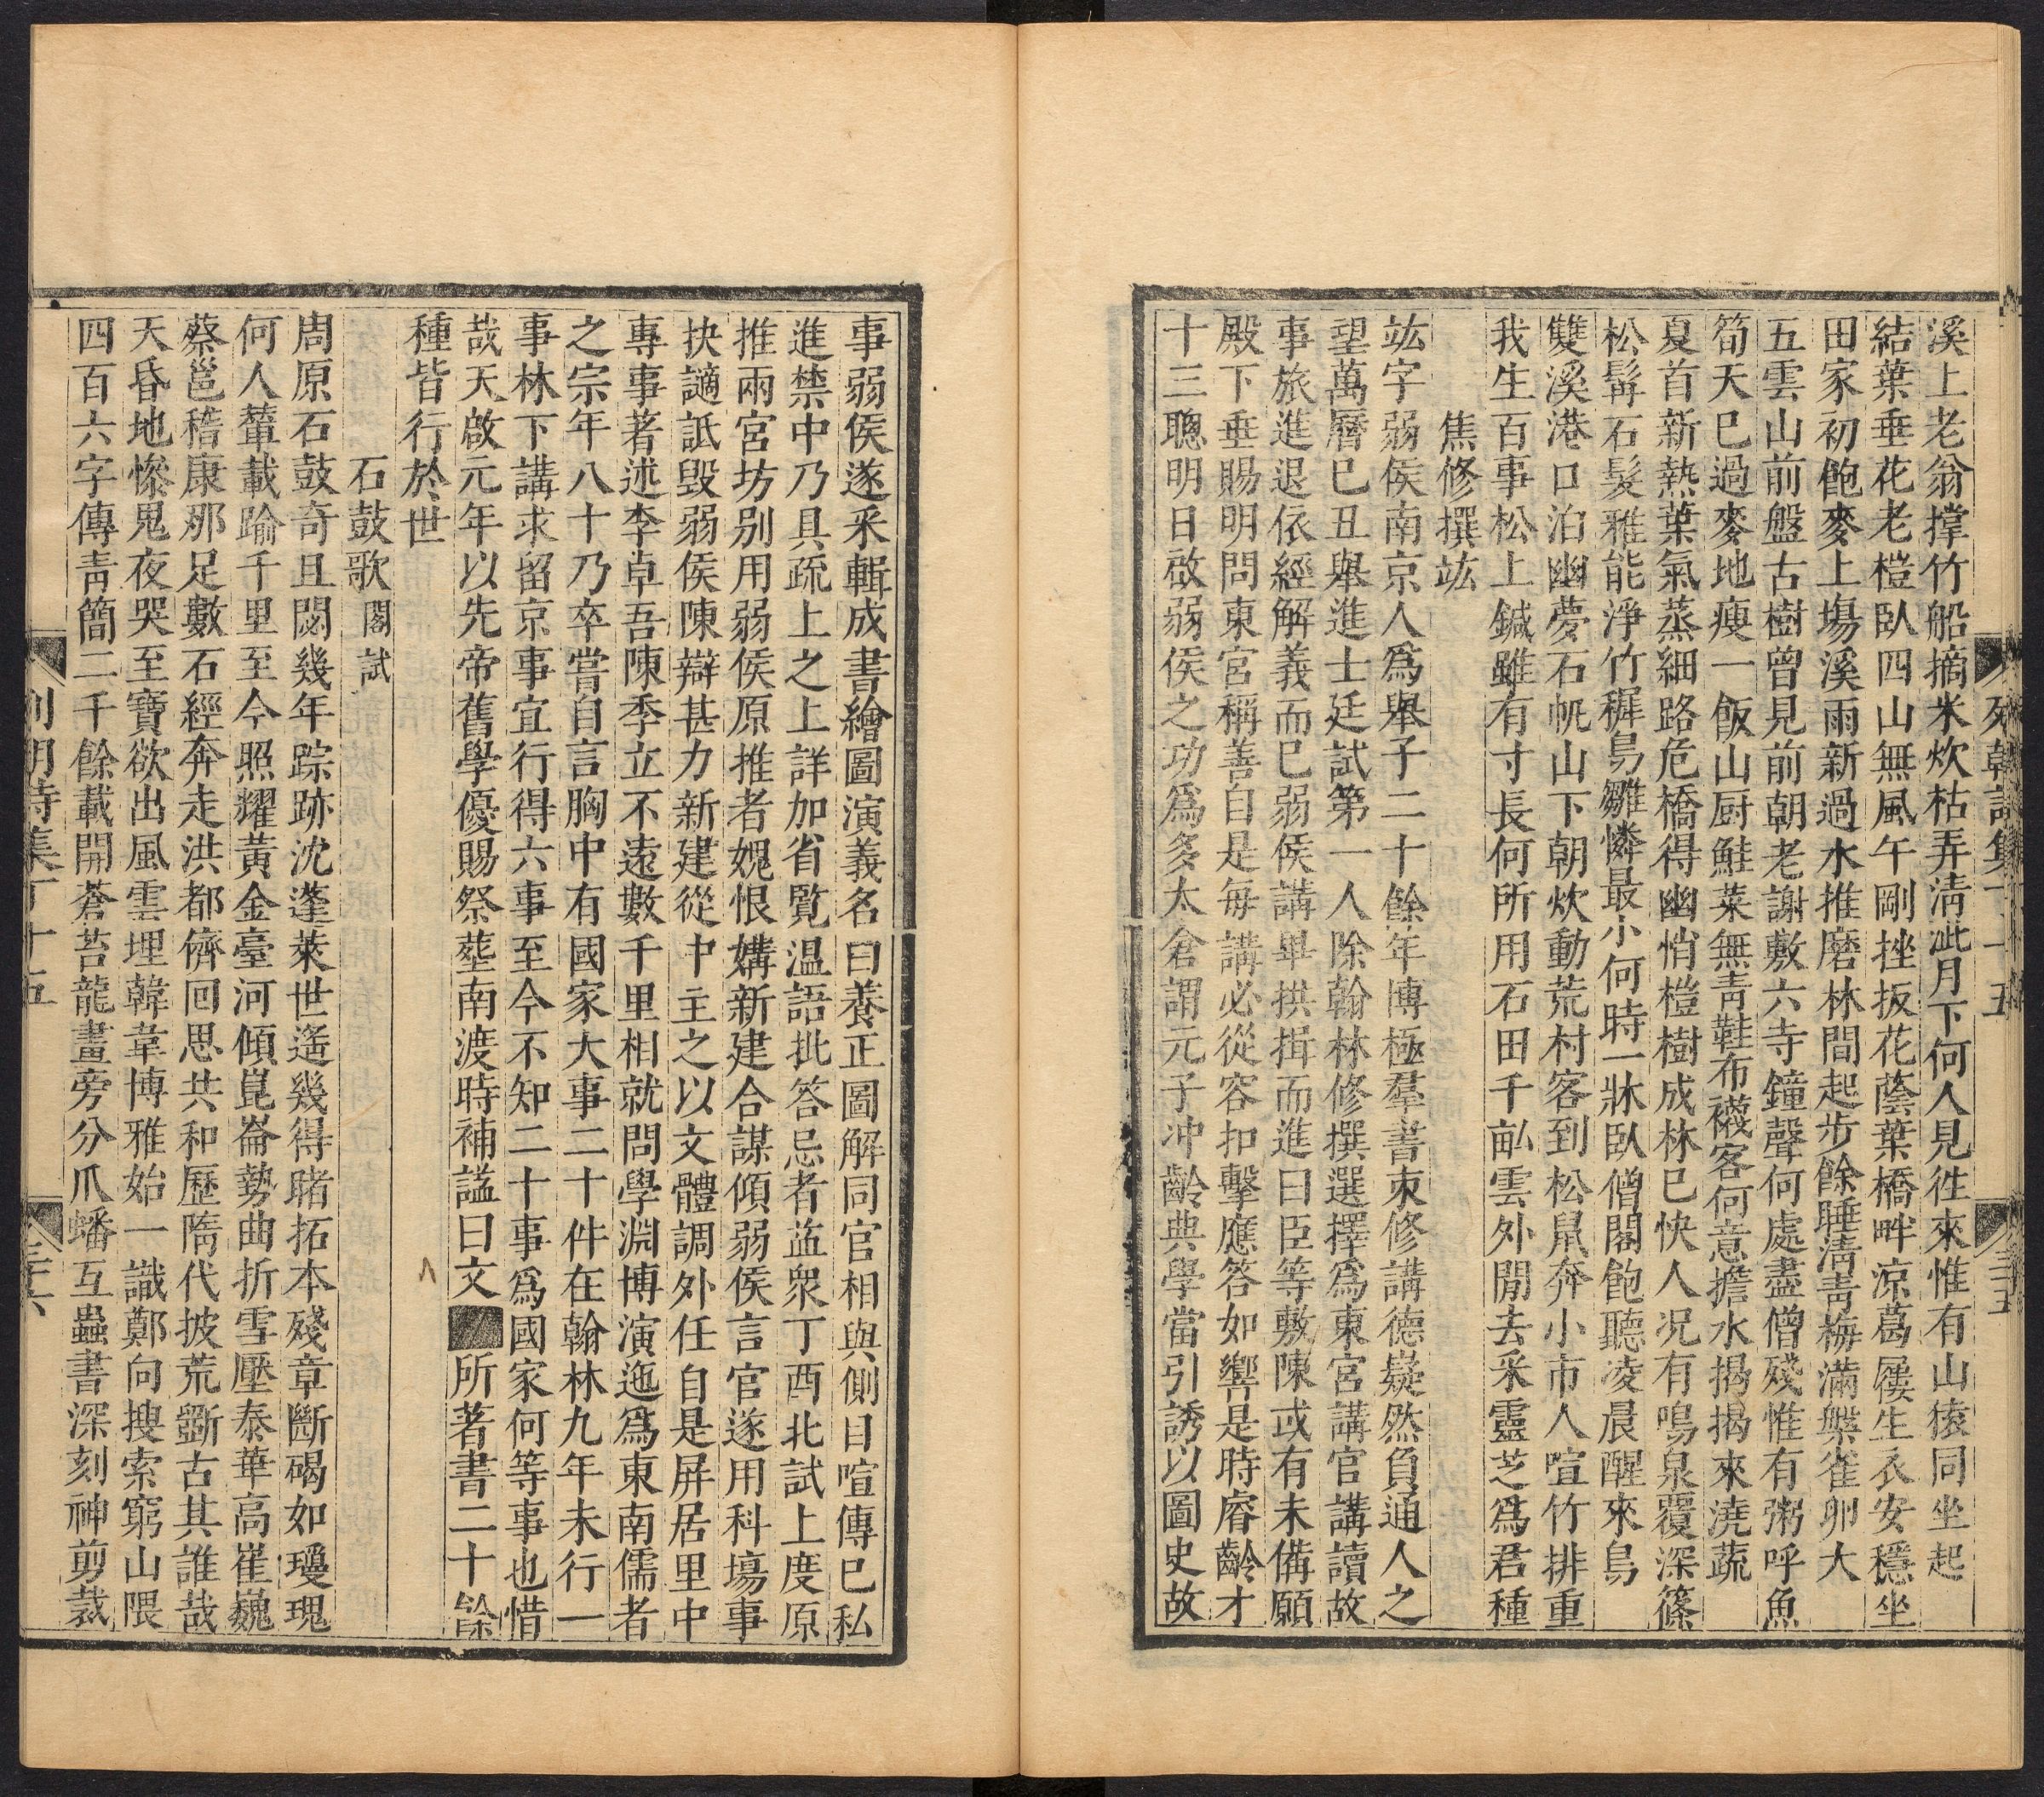 列朝詩集丁十五
三十五
溪上老翁撑竹船摘米炊枯弄清泚月下何人見徃來惟有山猿同坐起
結葉垂花老榿臥四山無風午剛挫扳花蔭葉橋畔涼葛屨生衣安穩坐
田家初飽麥上塲溪雨新過水推磨林間起步餘睡清靑梅滿槃雀卵大
五雲山前盤古樹曾見前朝老謝敷六寺鐘聲何處盡僧殘惟有粥呼魚
筍天巳過麥地瘦一飯山厨鮭菜無靑鞋布襪客何意擔水揭揭來澆蔬
夏首新熱葉氣蒸細路危橋得幽悄榿樹成林巳快人况有鳴泉覆深篠
松髯石髮雅能淨竹穉鳥雛憐最小何時一牀臥僧閣飽聽凌晨醒來鳥
雙溪港口泊幽夢石帆山下朝炊動荒村客到松鼠奔小市人喧竹排重
我生百事松上鍼雖有寸長何所用石田千畝雲外閒去釆靈芝爲君種
焦修撰竑
竑字弱侯南京人爲舉子二十餘年博極羣書朿修講德嶷然負通人之
望萬曆巳丑舉進士廷試第一人除翰林修撰選擇爲東宮講官講讀故
事旅進退依經解義而巳弱侯講畢拱揖而進曰臣等敷陳或有未備願
殿下垂賜明問東宮稱善自是每講必從容扣擊應答如響是時睿齡才
十三聰明日啟弱侯之功爲多太倉謂元子冲齡典學當引誘以圖史故
事弱侯遂釆輯成書繪圖演義名曰養正圖解同官相與側目喧傳巳私
進禁中乃具疏上之上詳加省覽温語批答忌者益衆丁酉北試上度原
推兩宮坊别用弱侯原推者媿恨媾新建合謀傾弱侯言官遂用科塲事
抉讁詆毀弱侯陳辯甚力新建從中主之以文體調外任自是屏居里中
專事著述李卓吾陳季立不遠數千里相就問學淵博演迤爲東南儒者
之宗年八十乃卒嘗自言胸中有國家大事二十件在翰林九年未行一
事林下講求留京事宜行得六事至今不知二十事爲國家何等事也惜
哉天啟元年以先帝舊學優賜祭塟南渡時補諡曰文 所著書二十餘
種皆行於世
石鼓歌閣試
周原石鼓奇且閟幾年踪跡沈蓬萊世遥幾得睹拓本殘章斷碣如瓊瑰
何人輦載踰千里至今照耀黃金臺河傾崑崙勢曲折雪壓泰華高崔巍
蔡邕嵇康那足數石經奔走洪都儕回思共和歷隋代披荒斵古其誰哉
天昏地慘鬼夜哭至寶欲出風雲埋韓韋博雅始一識鄭向搜索窮山隈
四百六字傳靑簡二千餘載開蒼苔龍畫旁分爪蟠互蟲書深刻神剪裁
列朝詩集丁十五
三十六